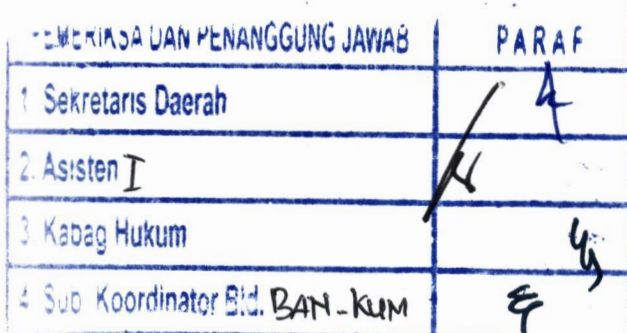 PEMERIKSA DAN PENANGGUNG JAWAB PARAF
1. Sekretaris Daerah
2. Asisten I
3. Kabag Hukum
4. Sub. Koordinator Bid. BAN-KUM